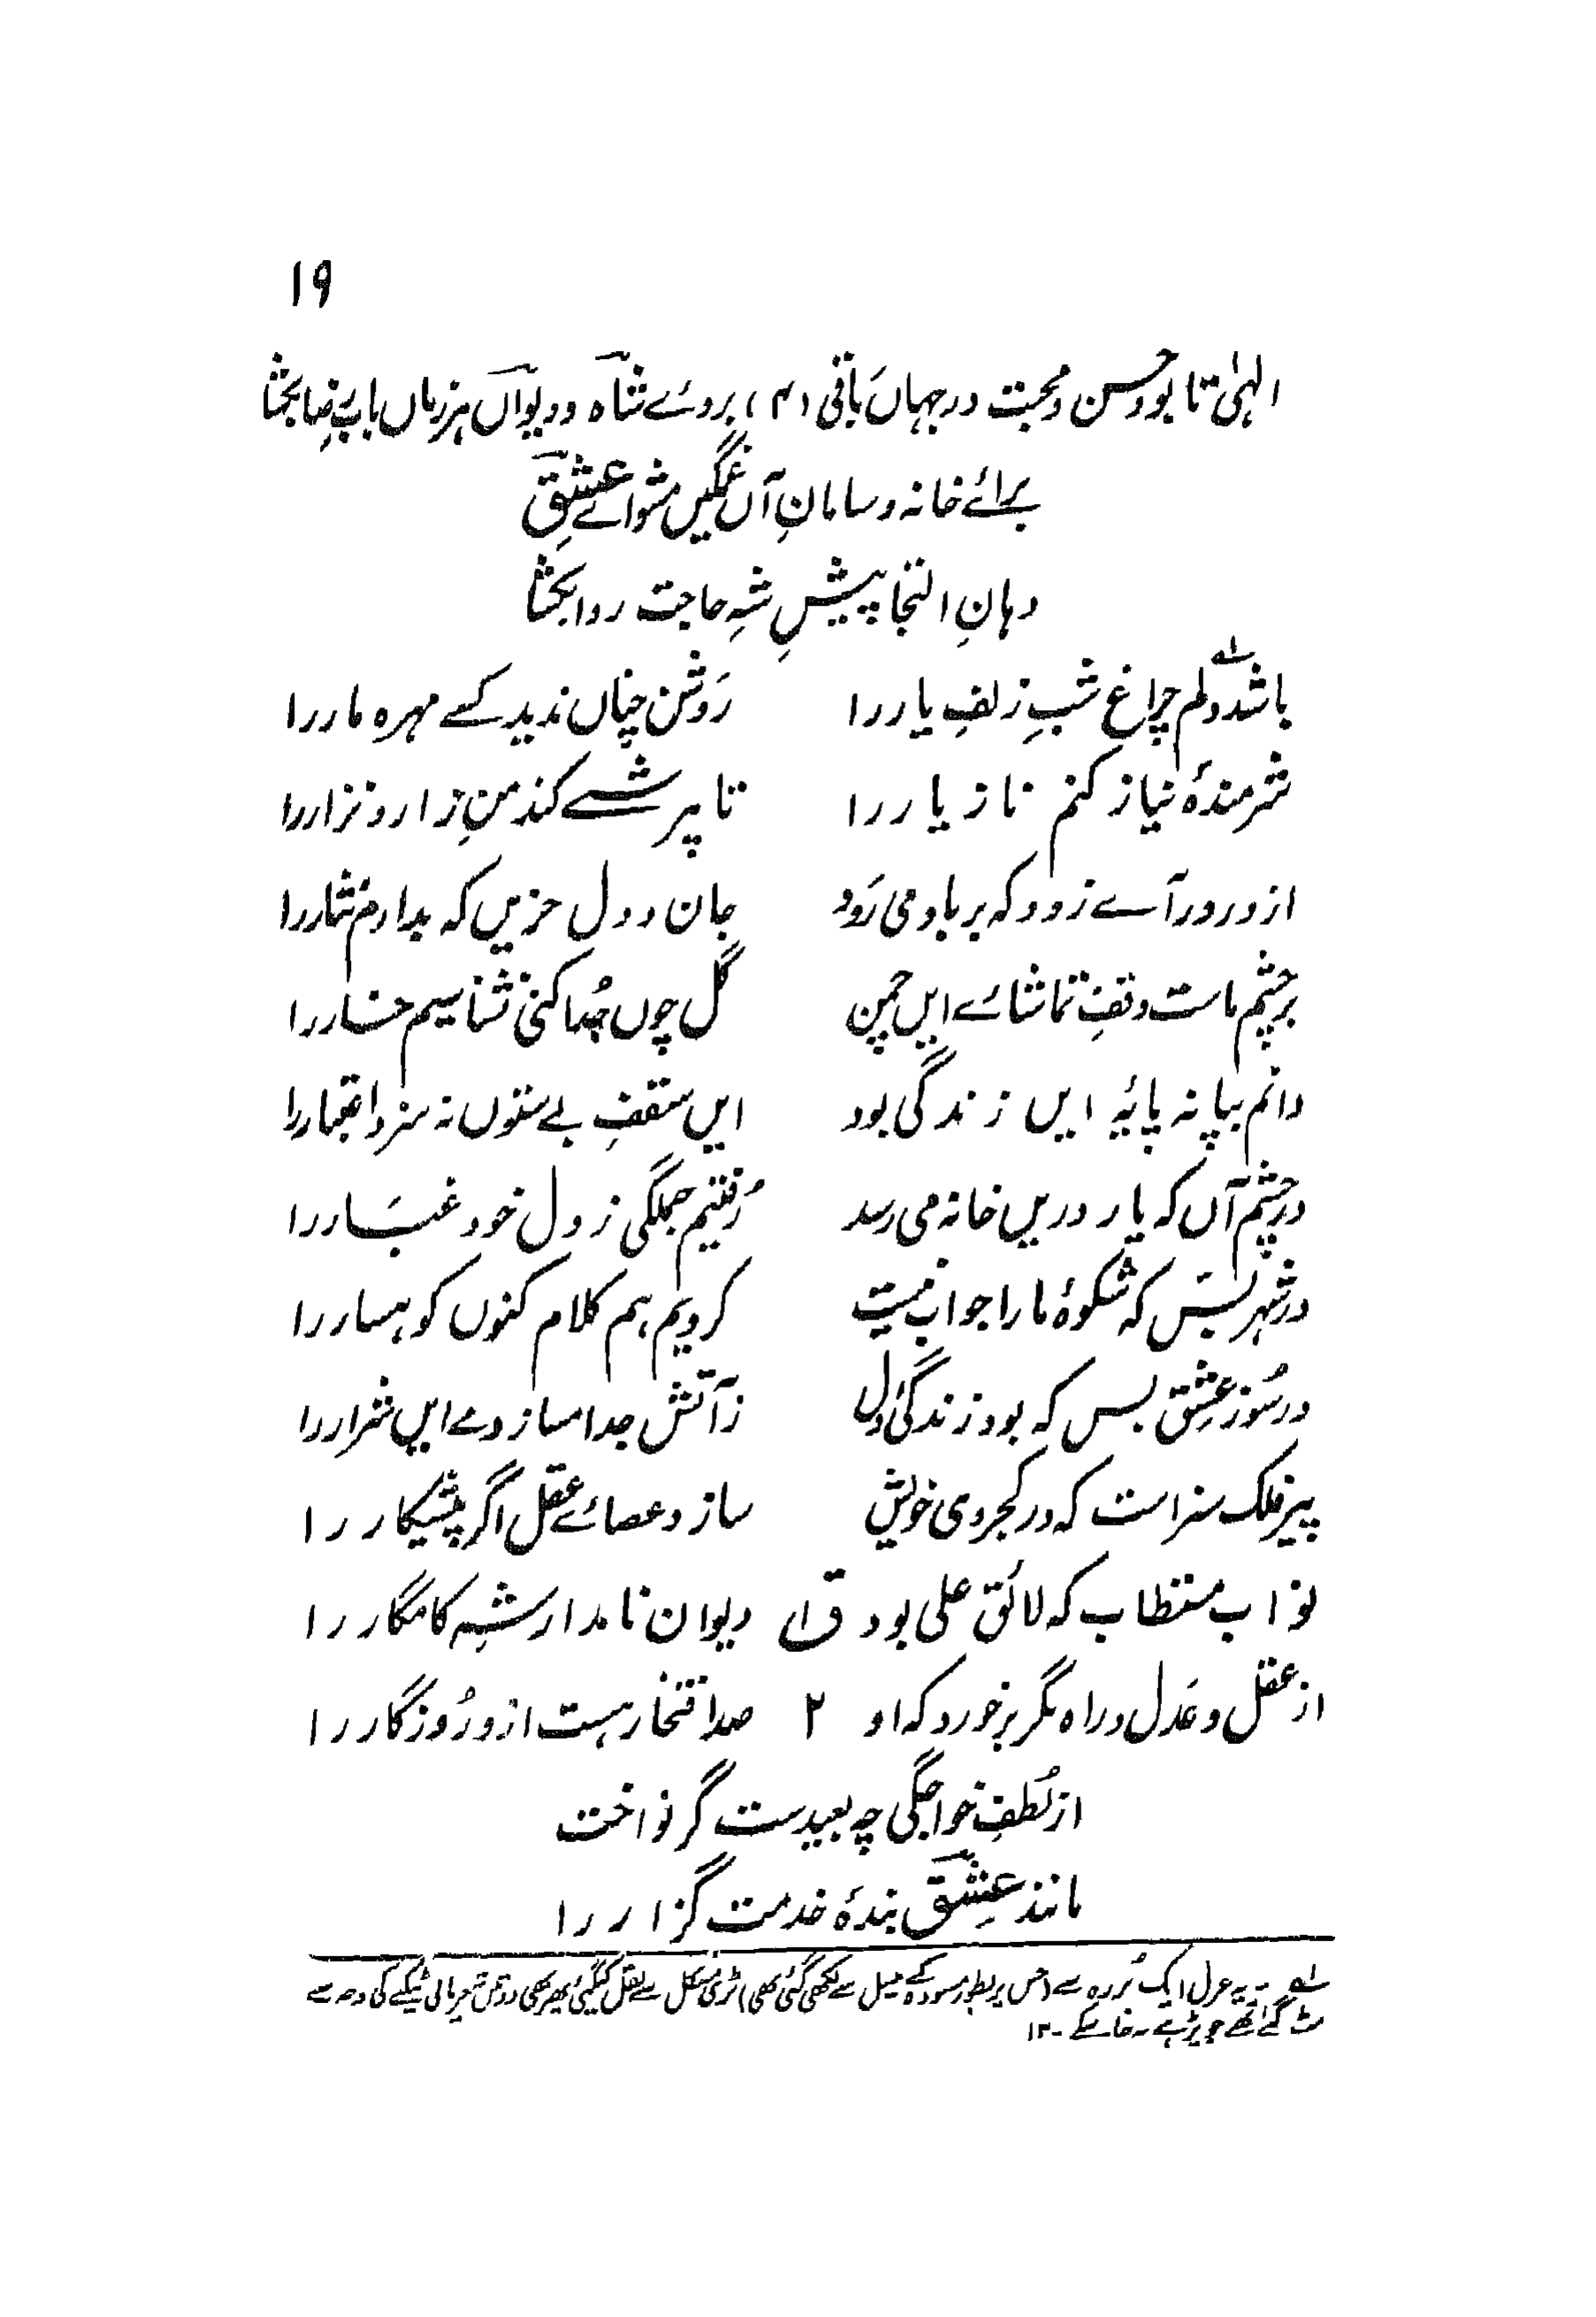 ۱۹
الہٰی تا بود حسن و محبت در جہاں باقی (۴) بروئے شاہ و دیواں ہر زماں باب رضا بکشا
برائے خانہ و سامانِ آں غمگیں مشو اے عشق
دہانِ التجا پیشِ شہِ حاجت روا بکشا
باشد دلم چراغ شبِ زلفِ یار را روشن چناں ندید کسے مہرہ مار را
شرمندۂ نیاز کنم ناز یار را تا پرسشے کند منِ زار و نزار را
از در درآے زود کہ برباد می رَود جان و دل حزیں کہ بدارم نثار را
بر چشم ماست وقفِ تماشائے ایں چمن گل چوں جُدا کنی نشناسیم خار را
دانم بپا نہ پایۂ ایں زندگی بود ایں سقفِ بے ستوں نہ سزد اعتماد را
در چشم آں کہ یار دریں خانہ می رسد رُفتیم جملگی ز دل خود غبار را
در شہر نیست کس کہ شکوۂ ما را جواب نیست کردیم ہم کلام کنوں کوہسار را
در سوزِ عشق بس کہ بود زندگیٔ دل ز آتش جدا مساز دے ایں شرار را
پیر فلک سزاست کہ در کجروی خویش سازد عصائے عقل اگر پیشکار را
نواب مستطاب کہ لائق علی بود ق ۱ دیوان نامدار شہِ کامگار را
از عقل و عدل و راہ نگر برخورد کہ او ۲ صد افتخار ہست ازو رُوزگار را
از لُطفِ خواجگی چہ بعیدست گر نواخت
مانند عشق بندۂ خدمت گزار را
لہ ۔ یہ غزل ایک پُرزہ سے (جس پر بطور مسودہ کے پنسل سے لکھی گئی تھی) بڑی مشکل سے نقل کیگئی پھر بھی
مٹ گئے تھے جو پڑھے نہ جا سکے ۔ ۱۲